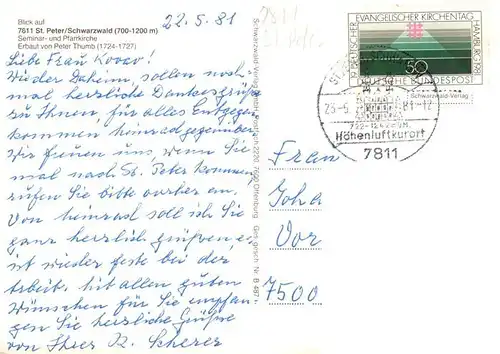 Blick auf
7811 St. Peter/Schwarzwald (700-1200 m)
Seminar- und Pfarrkirche
Erbaut von Peter Thumb (1724-1727)
22.5.81
Liebe Frau
Wieder daheim, sollen noch-
mal herzliche Dankesgrüße
zu Ihnen, für alles Entgegen-
kommen heinrad gegenüber.
Wir freuen uns, wenn Sie
mal nach St. Peter kommen,
rufen Sie bitte vorher an.
Von heinrad soll ich Sie
ganz herzlich grüßen, er
ist wieder feste bei der
Arbeit. Mit allen guten
Wünschen für Sie empfan-
gen Sie herzliche Grüße
von Ihrer R. Scherer
Schwarzwald-Verlag
7811
St. Peter
19. DEUTSCHER EVANGELISCHER KIRCHENTAG HAMBURG 1981
50
DEUTSCHE BUNDESPOST
Schwarzwald-Verlag
81-12
Höhenluftkurort
7811
Frau
Joha
Vor
7500